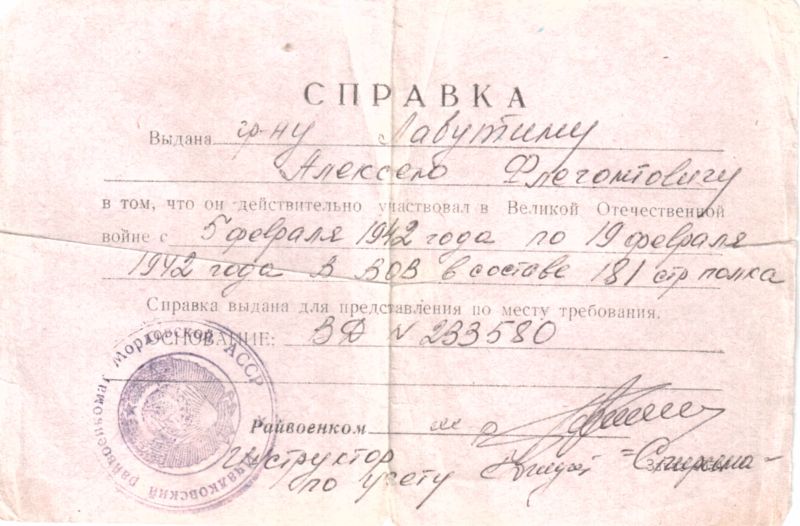 СПРАВКА
Выдана гр-ну Лавутину
Алексею Флегонтовичу
в том, что он действительно участвовал в Великой Отечественной
войне с 5 февраля 1942 года по 19 февраля
1942 года в ВОВ в составе 181 стр полка
Справка выдана для представления по месту требования.
ОСНОВАНИЕ: ВД № 233580
Райвоенком
Инструктор
по учету
Ичалковский райвоенкомат Мордовской АССР